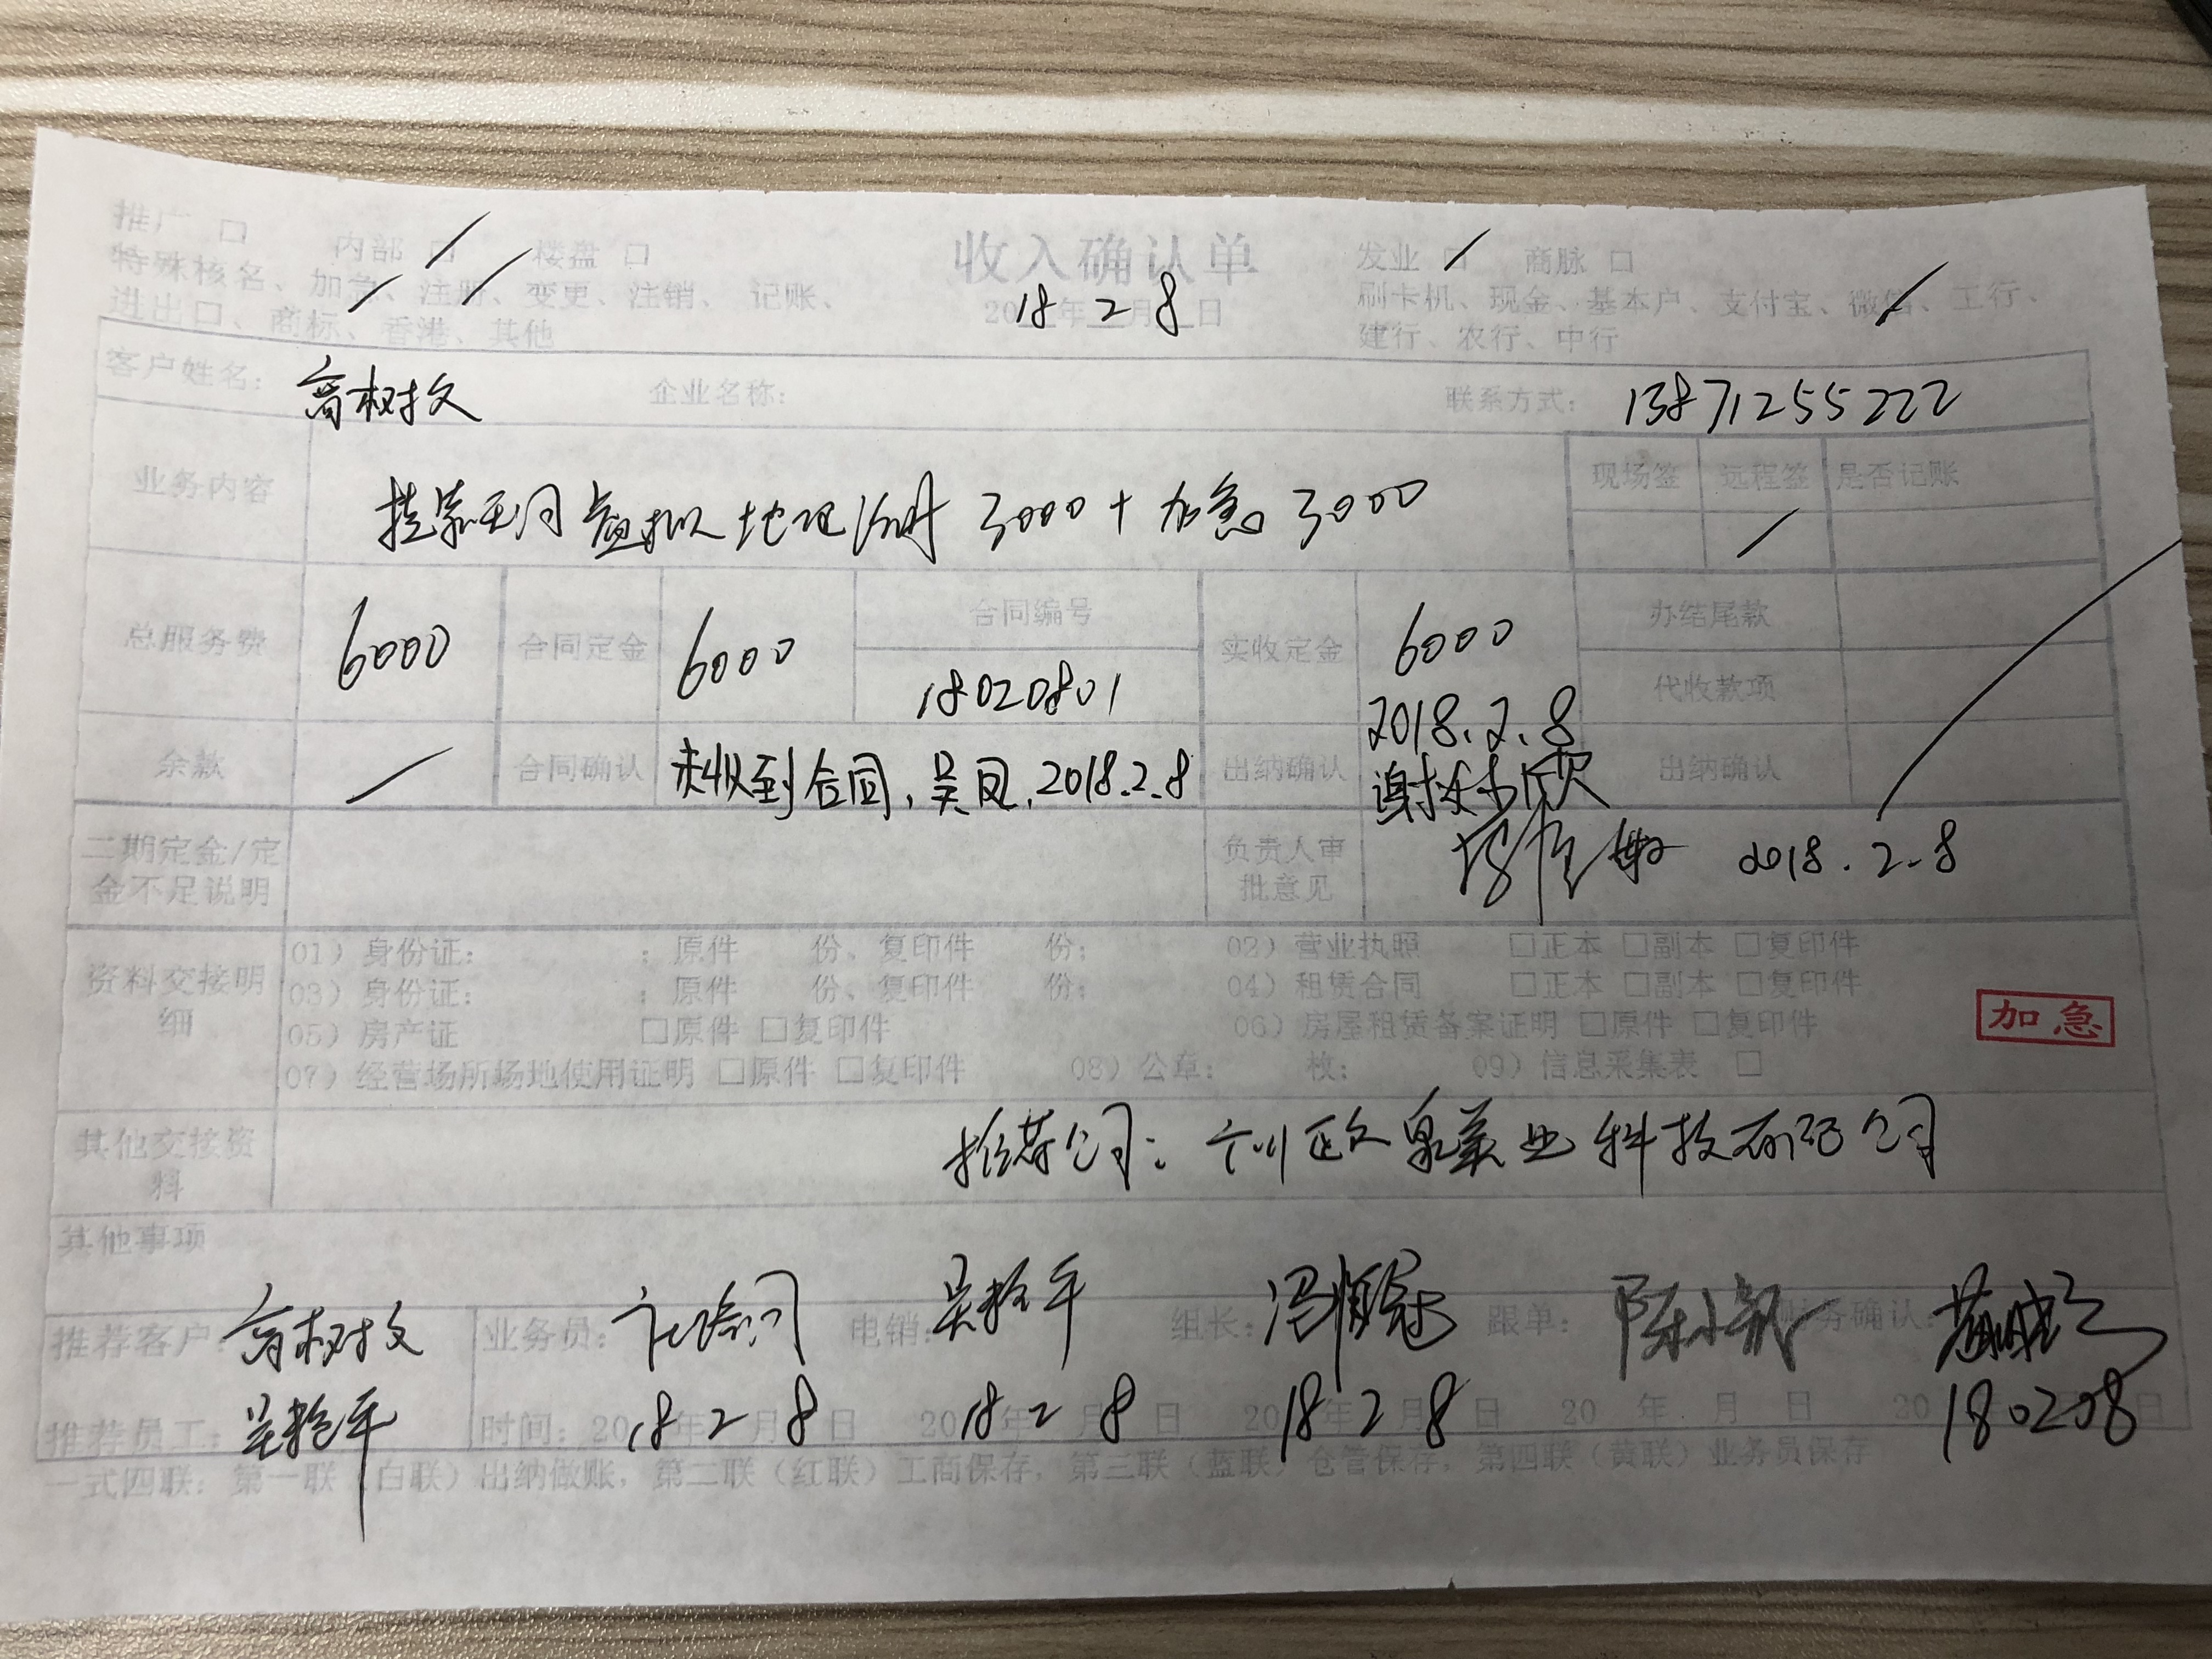 推广 □ 内部 □ 楼盘 □
收入确认单
发业 □ 商脉 □
特殊核名、加急、注册、变更、注销、 记账、
进出口、商标、香港、其他
2018年2月8日
刷卡机、现金、基本户、支付宝、微信、工行、
建行、农行、中行
客户姓名: 树文 企业名称: 联系方式: 13871255222
业务内容 虚拟地址 3000 + 加急 3000
现场签 远程签 是否记账
总服务费 6000 合同定金 6000 合同编号 18020801 实收定金 6000 办结尾款
代收款项
余款 合同确认 未收到合同,吴凤,2018.2.8 出纳确认 2018.2.8 谢 出纳确认
二期定金/定金不足说明 负责人审批意见 2018.2.8
资料交接明细
01) 身份证: ; 原件 份、复印件 份; 02) 营业执照 □正本 □副本 □复印件
03) 身份证: ; 原件 份、复印件 份; 04) 租赁合同 □正本 □副本 □复印件
05) 房产证 □原件 □复印件 06) 房屋租赁备案证明 □原件 □复印件
加急
07) 经营场所场地使用证明 □原件 □复印件 08) 公章: 枚; 09) 信息采集表 □
其他交接资料 推荐公司: 科技有限公司
其他事项
推荐客户: 树文 业务员: 电销: 吴 组长: 冯 跟单: 陈小 财务确认:
推荐员工: 吴 时间: 2018年2月8日 2018年2月8日 2018年2月8日 20 年 月 日 20 180208 日
一式四联: 第一联(白联)出纳做账, 第二联(红联)工商保存, 第三联(蓝联)仓管保存, 第四联(黄联)业务员保存